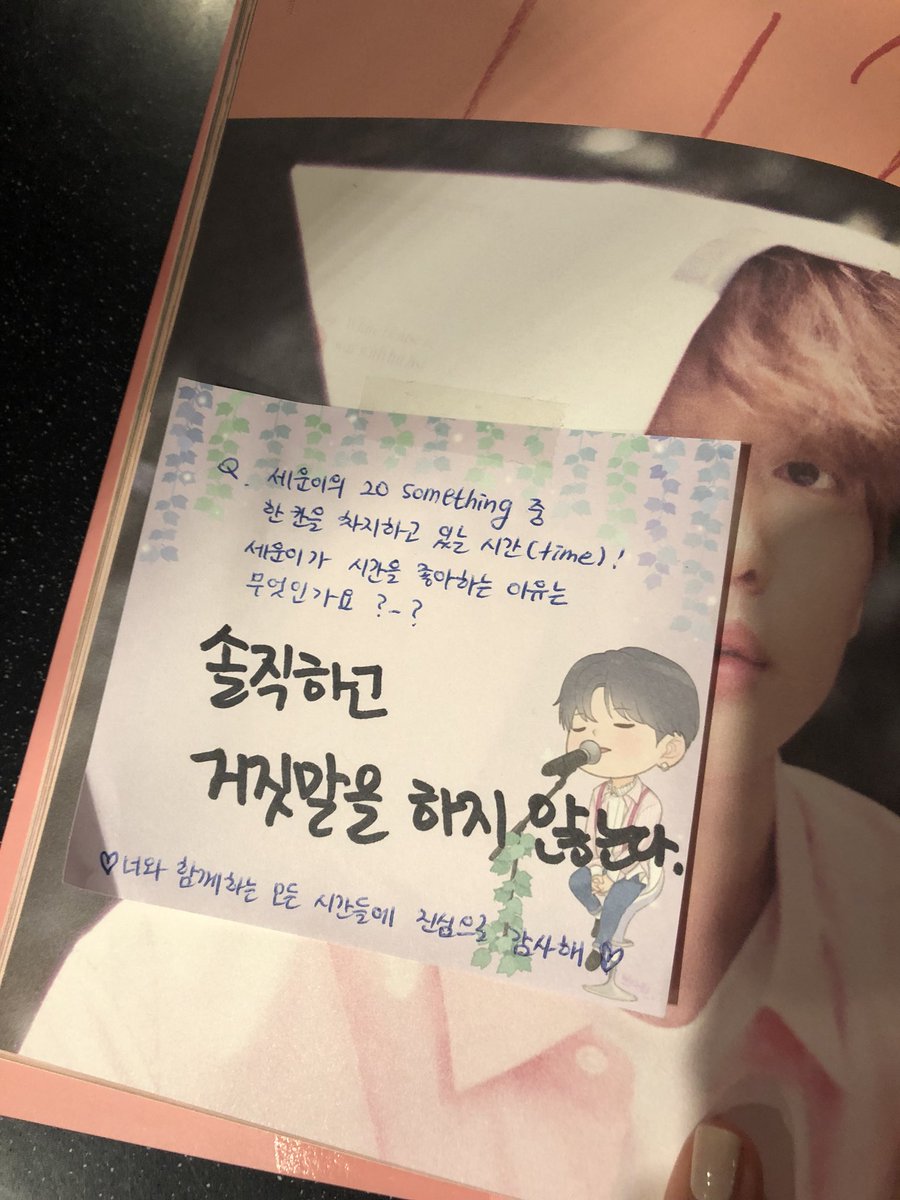 Q. 세운이의 20 something 중
한 칸을 차지하고 있는 시간(time)!
세운이가 시간을 좋아하는 이유는
무엇인가요 ?_?
솔직하고
거짓말을 하지 않는다.
♡너와 함께하는 모든 시간들에 진심으로 감사해♡